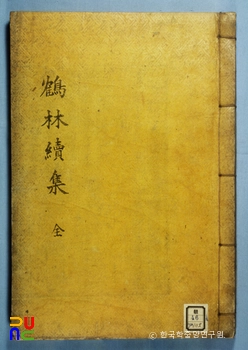 鶴林續集
全
© 한국학중앙연구원